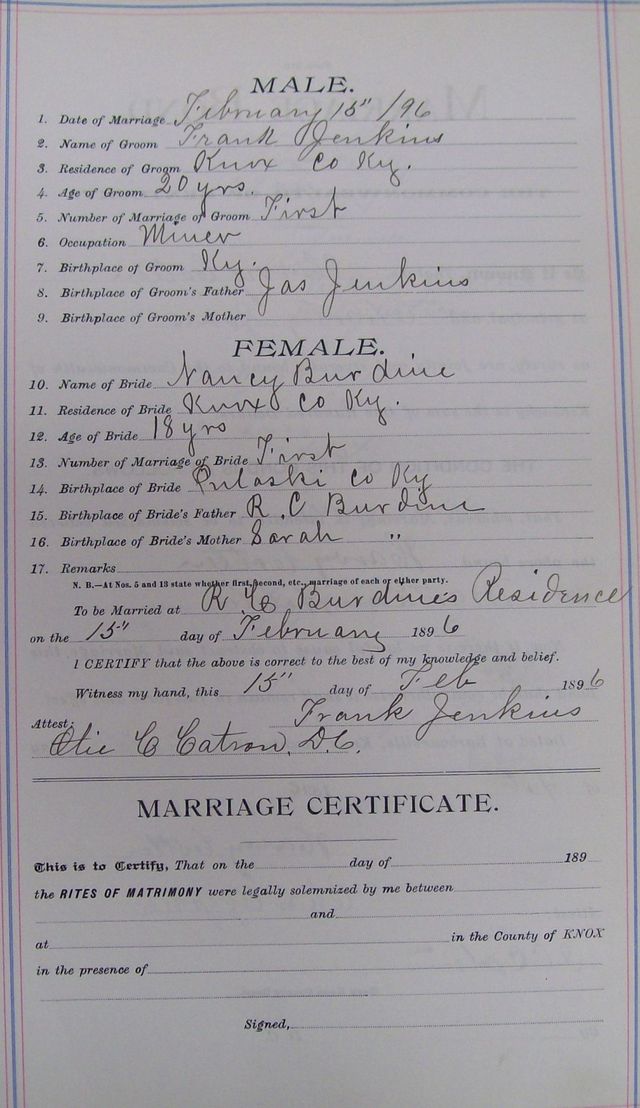 MALE.
1. Date of Marriage February 15" /96
2. Name of Groom Frank Jenkins
3. Residence of Groom Knox Co Ky.
4. Age of Groom 20 yrs.
5. Number of Marriage of Groom First
6. Occupation Miner
7. Birthplace of Groom Ky.
8. Birthplace of Groom's Father Jas Jenkins
9. Birthplace of Groom's Mother
FEMALE.
10. Name of Bride Nancy Burdine
11. Residence of Bride Knox Co Ky.
12. Age of Bride 18 yrs
13. Number of Marriage of Bride First
14. Birthplace of Bride Pulaski Co Ky
15. Birthplace of Bride's Father R. C Burdine
16. Birthplace of Bride's Mother Sarah "
17. Remarks
N. B.—At Nos. 5 and 13 state whether first, second, etc., marriage of each or either party.
To be Married at R. C. Burdine's Residence
on the 15" day of February 1896
I CERTIFY that the above is correct to the best of my knowledge and belief.
Witness my hand, this 15" day of Feb 1896
Frank Jenkins
Attest:
C Catron, D.C.
MARRIAGE CERTIFICATE.
This is to Certify, That on the day of 189
the RITES OF MATRIMONY were legally solemnized by me between
and
at in the County of KNOX
in the presence of
Signed,